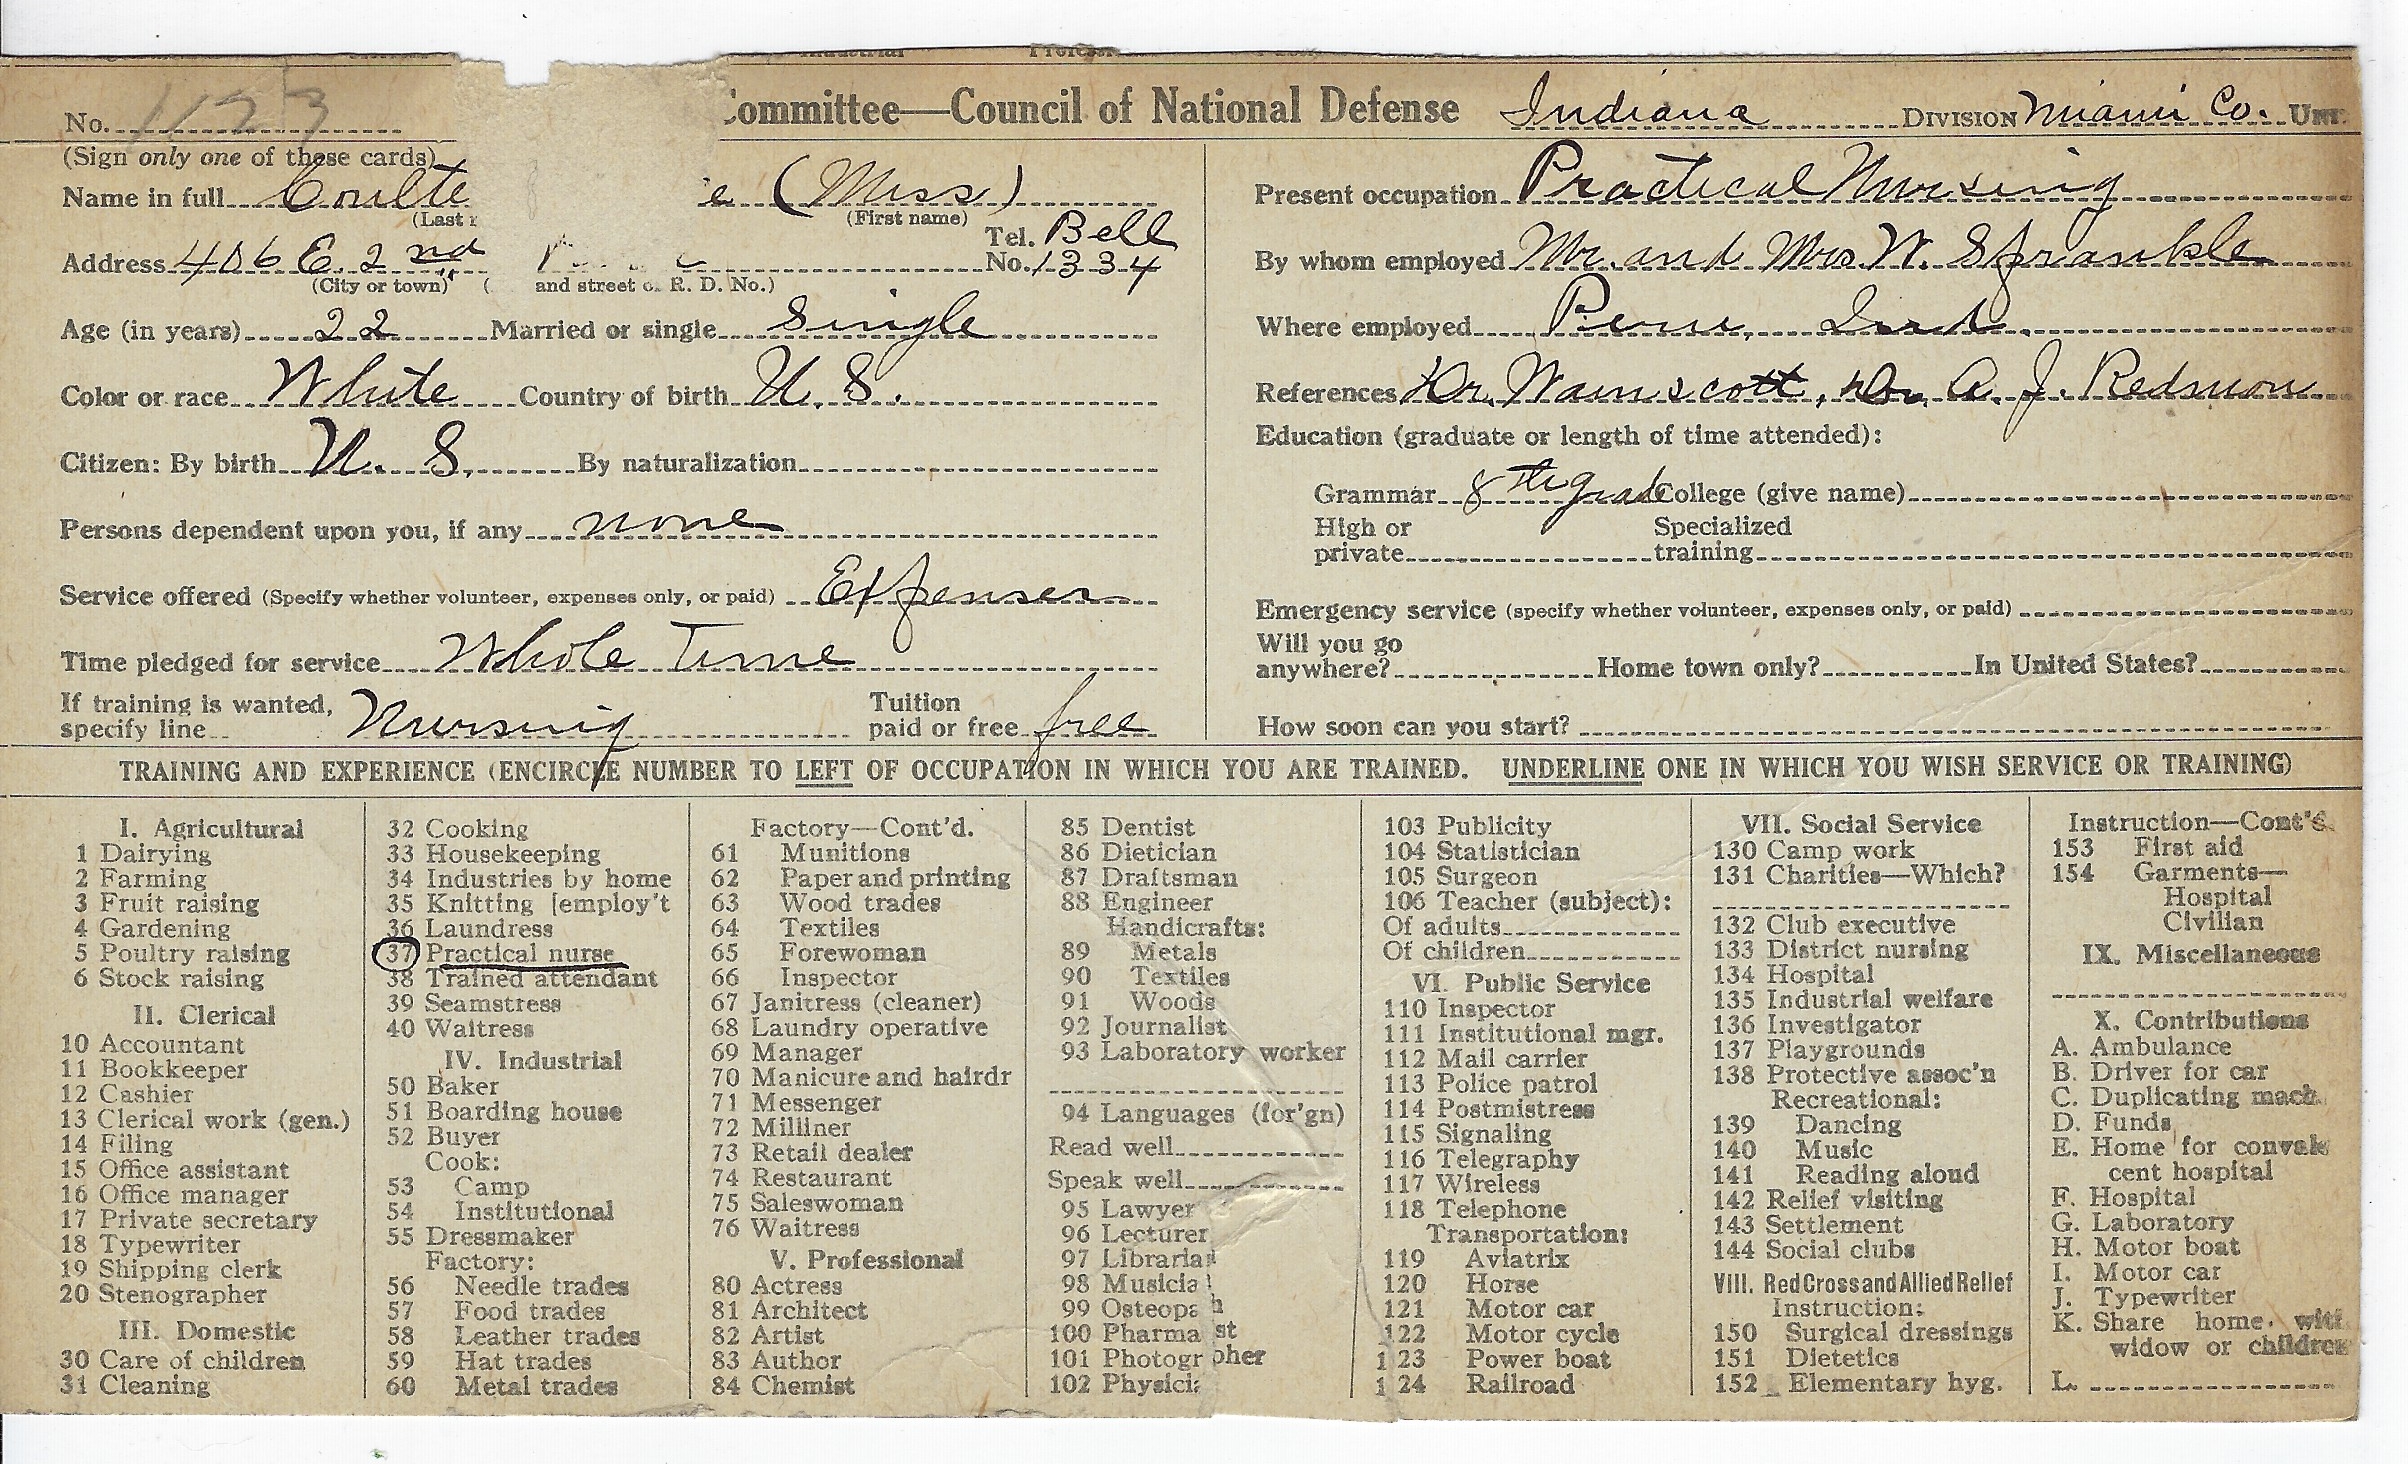 No. 1123
Committee—Council of National Defense Indiana DIVISION Miami Co. UNIT
(Sign only one of these cards)
Name in full Coulte e (Miss)
(Last (First name)
Address 406 E. 2nd Tel. No. Bell 1334
(City or town) ( and street or R. D. No.)
Age (in years) 22 Married or single Single
Color or race White Country of birth U. S.
Citizen: By birth U. S. By naturalization
Persons dependent upon you, if any none
Service offered (Specify whether volunteer, expenses only, or paid) Expenses
Time pledged for service Whole Time
If training is wanted, specify line Nursing Tuition paid or free free
Present occupation Practical Nursing
By whom employed Mr. and Mrs. W. Sprankle
Where employed Peru, Ind.
References Dr. Wainscott, Dr. A. J. Redmon
Education (graduate or length of time attended):
Grammar 8th grade College (give name)
High or private Specialized training
Emergency service (specify whether volunteer, expenses only, or paid)
Will you go anywhere? Home town only? In United States?
How soon can you start?
TRAINING AND EXPERIENCE (ENCIRCLE NUMBER TO LEFT OF OCCUPATION IN WHICH YOU ARE TRAINED. UNDERLINE ONE IN WHICH YOU WISH SERVICE OR TRAINING)
I. Agricultural
1 Dairying
2 Farming
3 Fruit raising
4 Gardening
5 Poultry raising
6 Stock raising
II. Clerical
10 Accountant
11 Bookkeeper
12 Cashier
13 Clerical work (gen.)
14 Filing
15 Office assistant
16 Office manager
17 Private secretary
18 Typewriter
19 Shipping clerk
20 Stenographer
III. Domestic
30 Care of children
31 Cleaning
32 Cooking
33 Housekeeping
34 Industries by home
35 Knitting [employ't
36 Laundress
37 Practical nurse
38 Trained attendant
39 Seamstress
40 Waitress
IV. Industrial
50 Baker
51 Boarding house
52 Buyer
Cook:
53 Camp
54 Institutional
55 Dressmaker
Factory:
56 Needle trades
57 Food trades
58 Leather trades
59 Hat trades
60 Metal trades
Factory—Cont'd.
61 Munitions
62 Paper and printing
63 Wood trades
64 Textiles
65 Forewoman
66 Inspector
67 Janitress (cleaner)
68 Laundry operative
69 Manager
70 Manicure and hairdr
71 Messenger
72 Milliner
73 Retail dealer
74 Restaurant
75 Saleswoman
76 Waitress
V. Professional
80 Actress
81 Architect
82 Artist
83 Author
84 Chemist
85 Dentist
86 Dietician
87 Draftsman
88 Engineer
Handicrafts:
89 Metals
90 Textiles
91 Woods
92 Journalist
93 Laboratory worker
94 Languages (for'gn)
Read well
Speak well
95 Lawyer
96 Lecturer
97 Librarian
98 Musicia
99 Osteopa h
100 Pharma ist
101 Photogr pher
102 Physici
103 Publicity
104 Statistician
105 Surgeon
106 Teacher (subject):
Of adults
Of children
VI. Public Service
110 Inspector
111 Institutional mgr.
112 Mail carrier
113 Police patrol
114 Postmistress
115 Signaling
116 Telegraphy
117 Wireless
118 Telephone
Transportation:
119 Aviatrix
120 Horse
121 Motor car
122 Motor cycle
123 Power boat
124 Railroad
VII. Social Service
130 Camp work
131 Charities—Which?
132 Club executive
133 District nursing
134 Hospital
135 Industrial welfare
136 Investigator
137 Playgrounds
138 Protective assoc'n
Recreational:
139 Dancing
140 Music
141 Reading aloud
142 Relief visiting
143 Settlement
144 Social clubs
VIII. Red Cross and Allied Relief
Instruction:
150 Surgical dressings
151 Dietetics
152 Elementary hyg.
Instruction—Cont'd.
153 First aid
154 Garments—
Hospital
Civilian
IX. Miscellaneous
X. Contributions
A. Ambulance
B. Driver for car
C. Duplicating mach.
D. Funds
E. Home for convales
cent hospital
F. Hospital
G. Laboratory
H. Motor boat
I. Motor car
J. Typewriter
K. Share home with
widow or children
L.